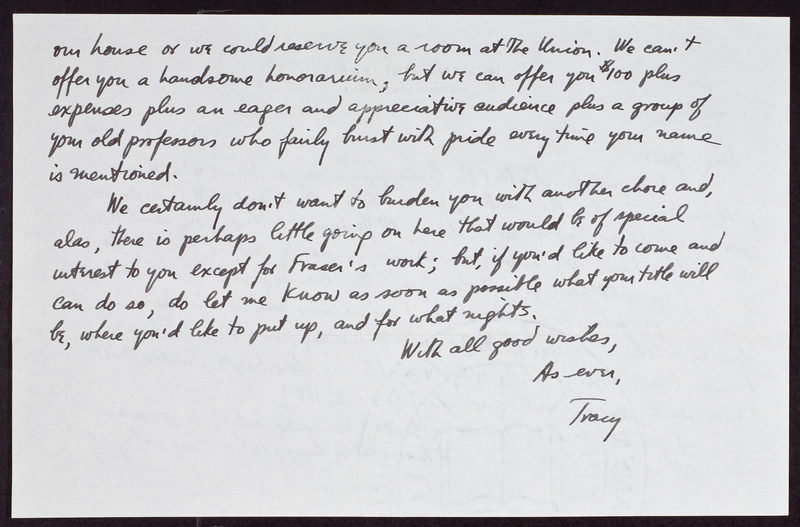 our house or we could reserve you a room at The Union. We can't
offer you a handsome honorarium; but we can offer you $100 plus
expenses plus an eager and appreciative audience plus a group of
your old professors who fairly burst with pride every time your name
is mentioned.
We certainly don't want to burden you with another chore and,
alas, there is perhaps little going on here that would be of special
interest to you except for Fraser's work; but, if you'd like to come and
can do so, do let me know as soon as possible what your title will
be, where you'd like to put up, and for what nights.
With all good wishes,
As ever,
Tracy